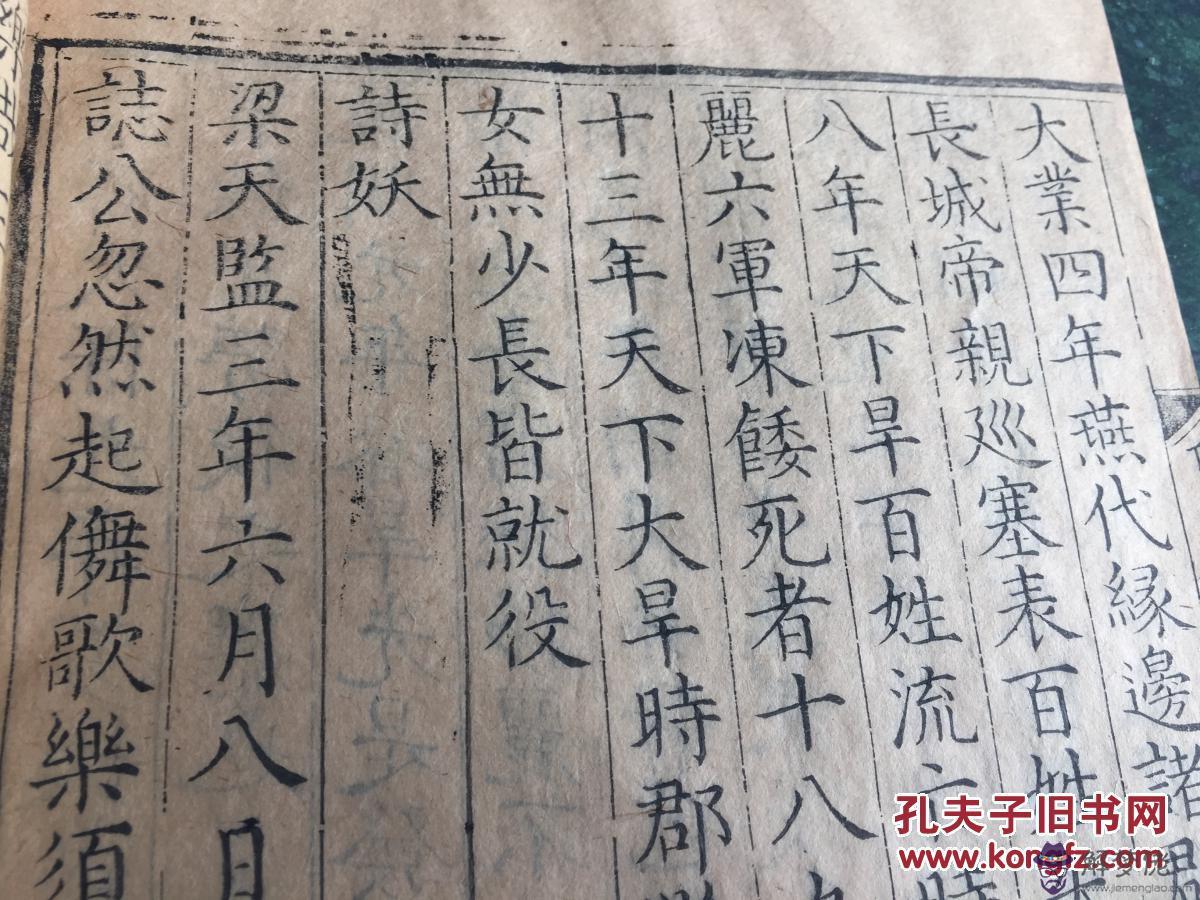 大業四年燕代緣邊諸
長城帝親廵塞表百姓
八年天下旱百姓流亡時
麗六軍凍餧死者十八
十三年天下大旱時郡
女無少長皆就役
詩妖
梁天監三年六月八日
誌公忽然起儛歌樂須
孔夫子旧书网
www.kongfz.com
解夢佬
www.jiemenglao.com